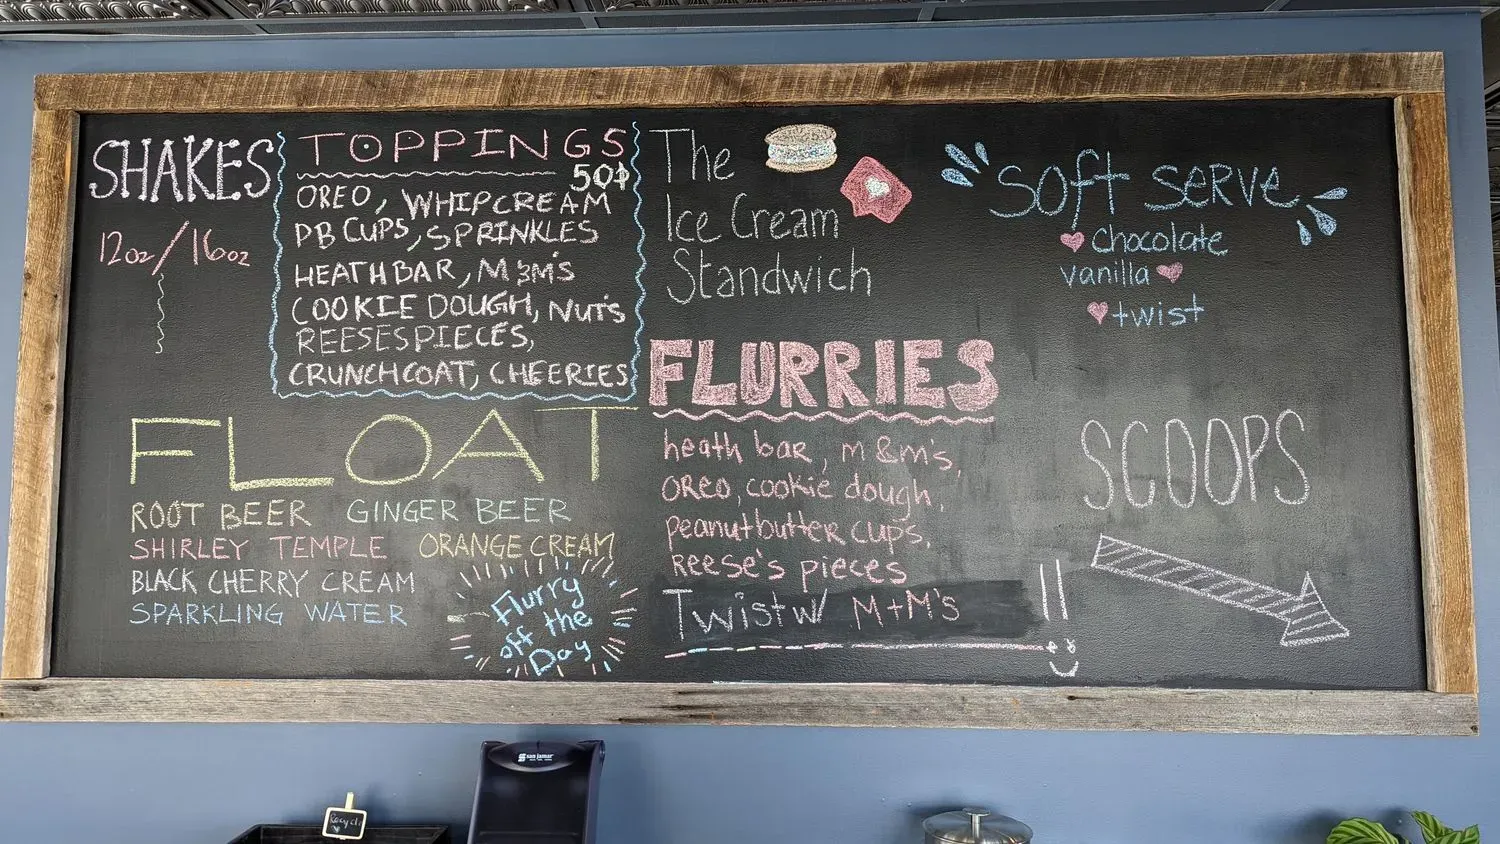 SHAKES
12oz/16oz
TOPPINGS
50¢
OREO, WHIPCREAM
PB CUPS, SPRINKLES
HEATHBAR, M&M'S
COOKIE DOUGH, NUTS
REESES PIECES,
CRUNCHCOAT, CHEERIES
FLOAT
ROOT BEER GINGER BEER
SHIRLEY TEMPLE ORANGE CREAM
BLACK CHERRY CREAM
SPARKLING WATER
Flurry
off the
Day
The
Ice Cream
Standwich
FLURRIES
heath bar, m&m's,
OREO, cookie dough,
peanutbutter cups,
Reese's pieces
Twist w/ M+M's
Soft Serve
chocolate
vanilla
twist
SCOOPS
san jamar
Recycle